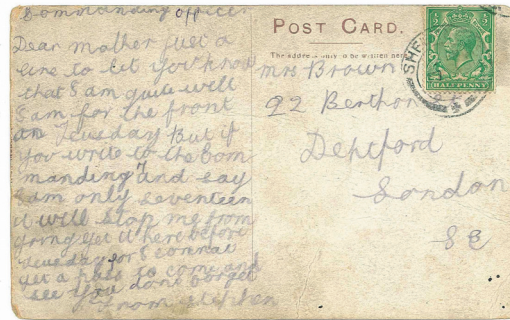 Commanding officer
Dear mother just a
line to let you know
that I am quite well
I am for the front
on Tuesday But if
you write to the Com
manding and say
I am only seventeen
it will stop me from
going get it here before
Tuesday for I connat
get a pass to come and
see you dont forget
from Stephen
POST CARD.
The address only to be written here
Mrs Brown
22 Berthon
Deptford
London
SE
SHE
HALFPENNY